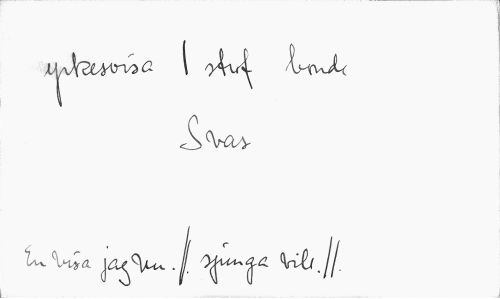 yrkesvisa 1 strof bonde
Svar
En visa jag nu .//. sjunga vill .//.